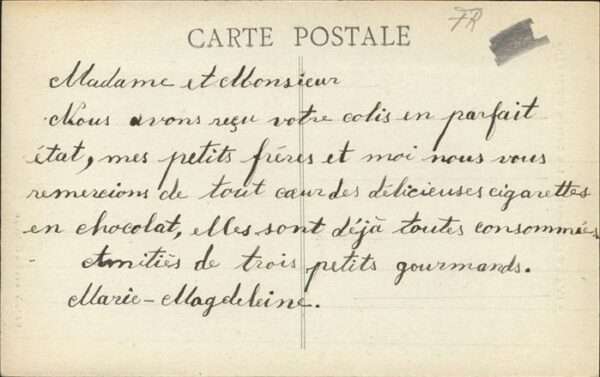 FR
CARTE POSTALE
Madame et Monsieur
Nous avons reçu votre colis en parfait
état, mes petits frères et moi nous vous
remercions de tout cœur des délicieuses cigarettes
en chocolat, elles sont déjà toutes consommées
Amitiés de trois petits gourmands.
Marie-Magdeleine.